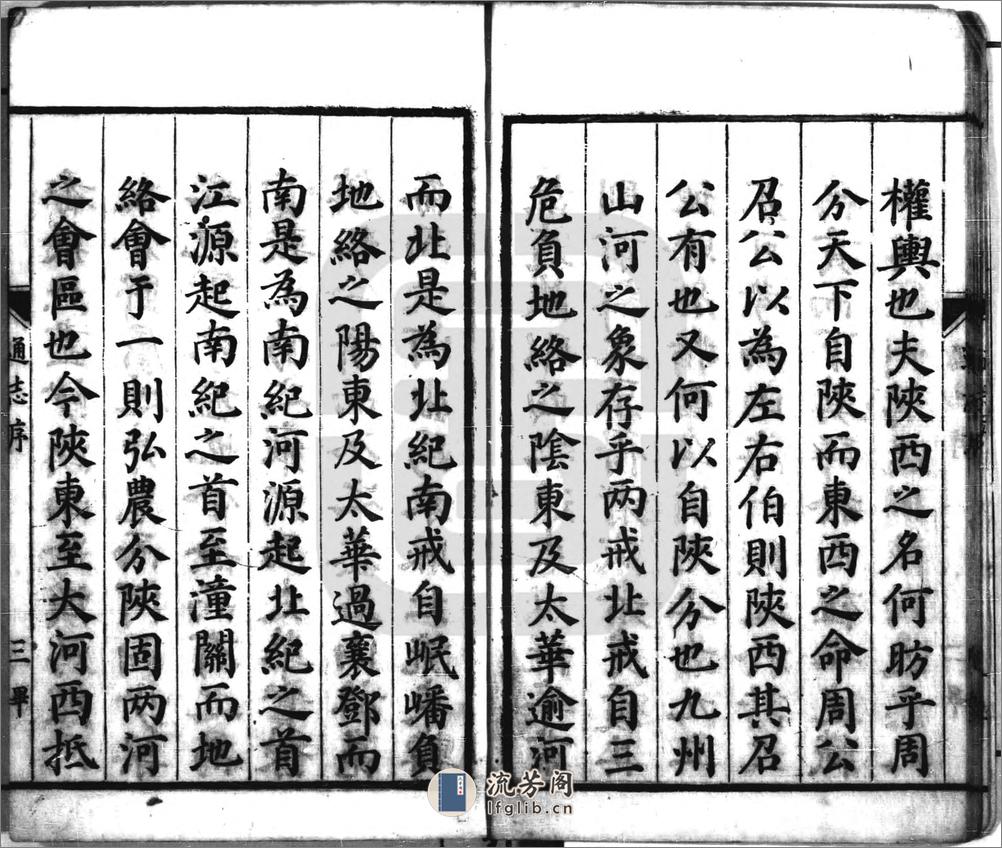 權輿也夫陝西之名何昉乎周
分天下自陝而東西之命周公
召公以為左右伯則陝西其召
公有也又何以自陝分也九州
山河之象存乎两戒北戒自三
危負地絡之陰東及太華逾河
而北是為北紀南戒自岷嶓負
地絡之陽東及太華過襄鄧而
南是為南紀河源起北紀之首
江源起南紀之首至潼關而地
絡會于一則弘農分陝固两河
之會區也今陝東至大河西抵
通志序
三
畢
流芳阁
lfglib.cn